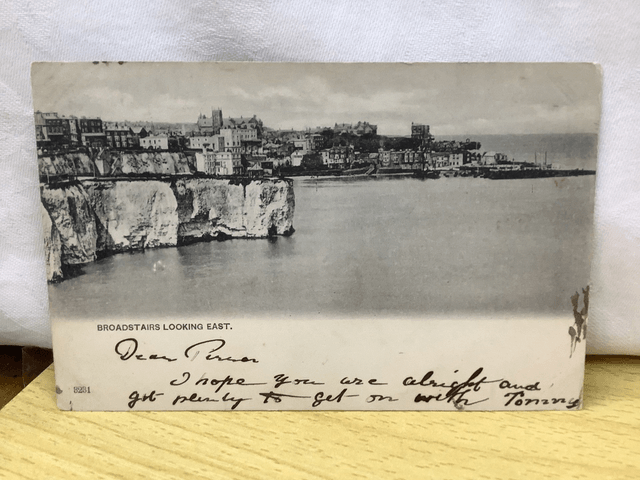 BROADSTAIRS LOOKING EAST.
Dear
I hope you are alright and
got plenty to get on with Tommy
8231